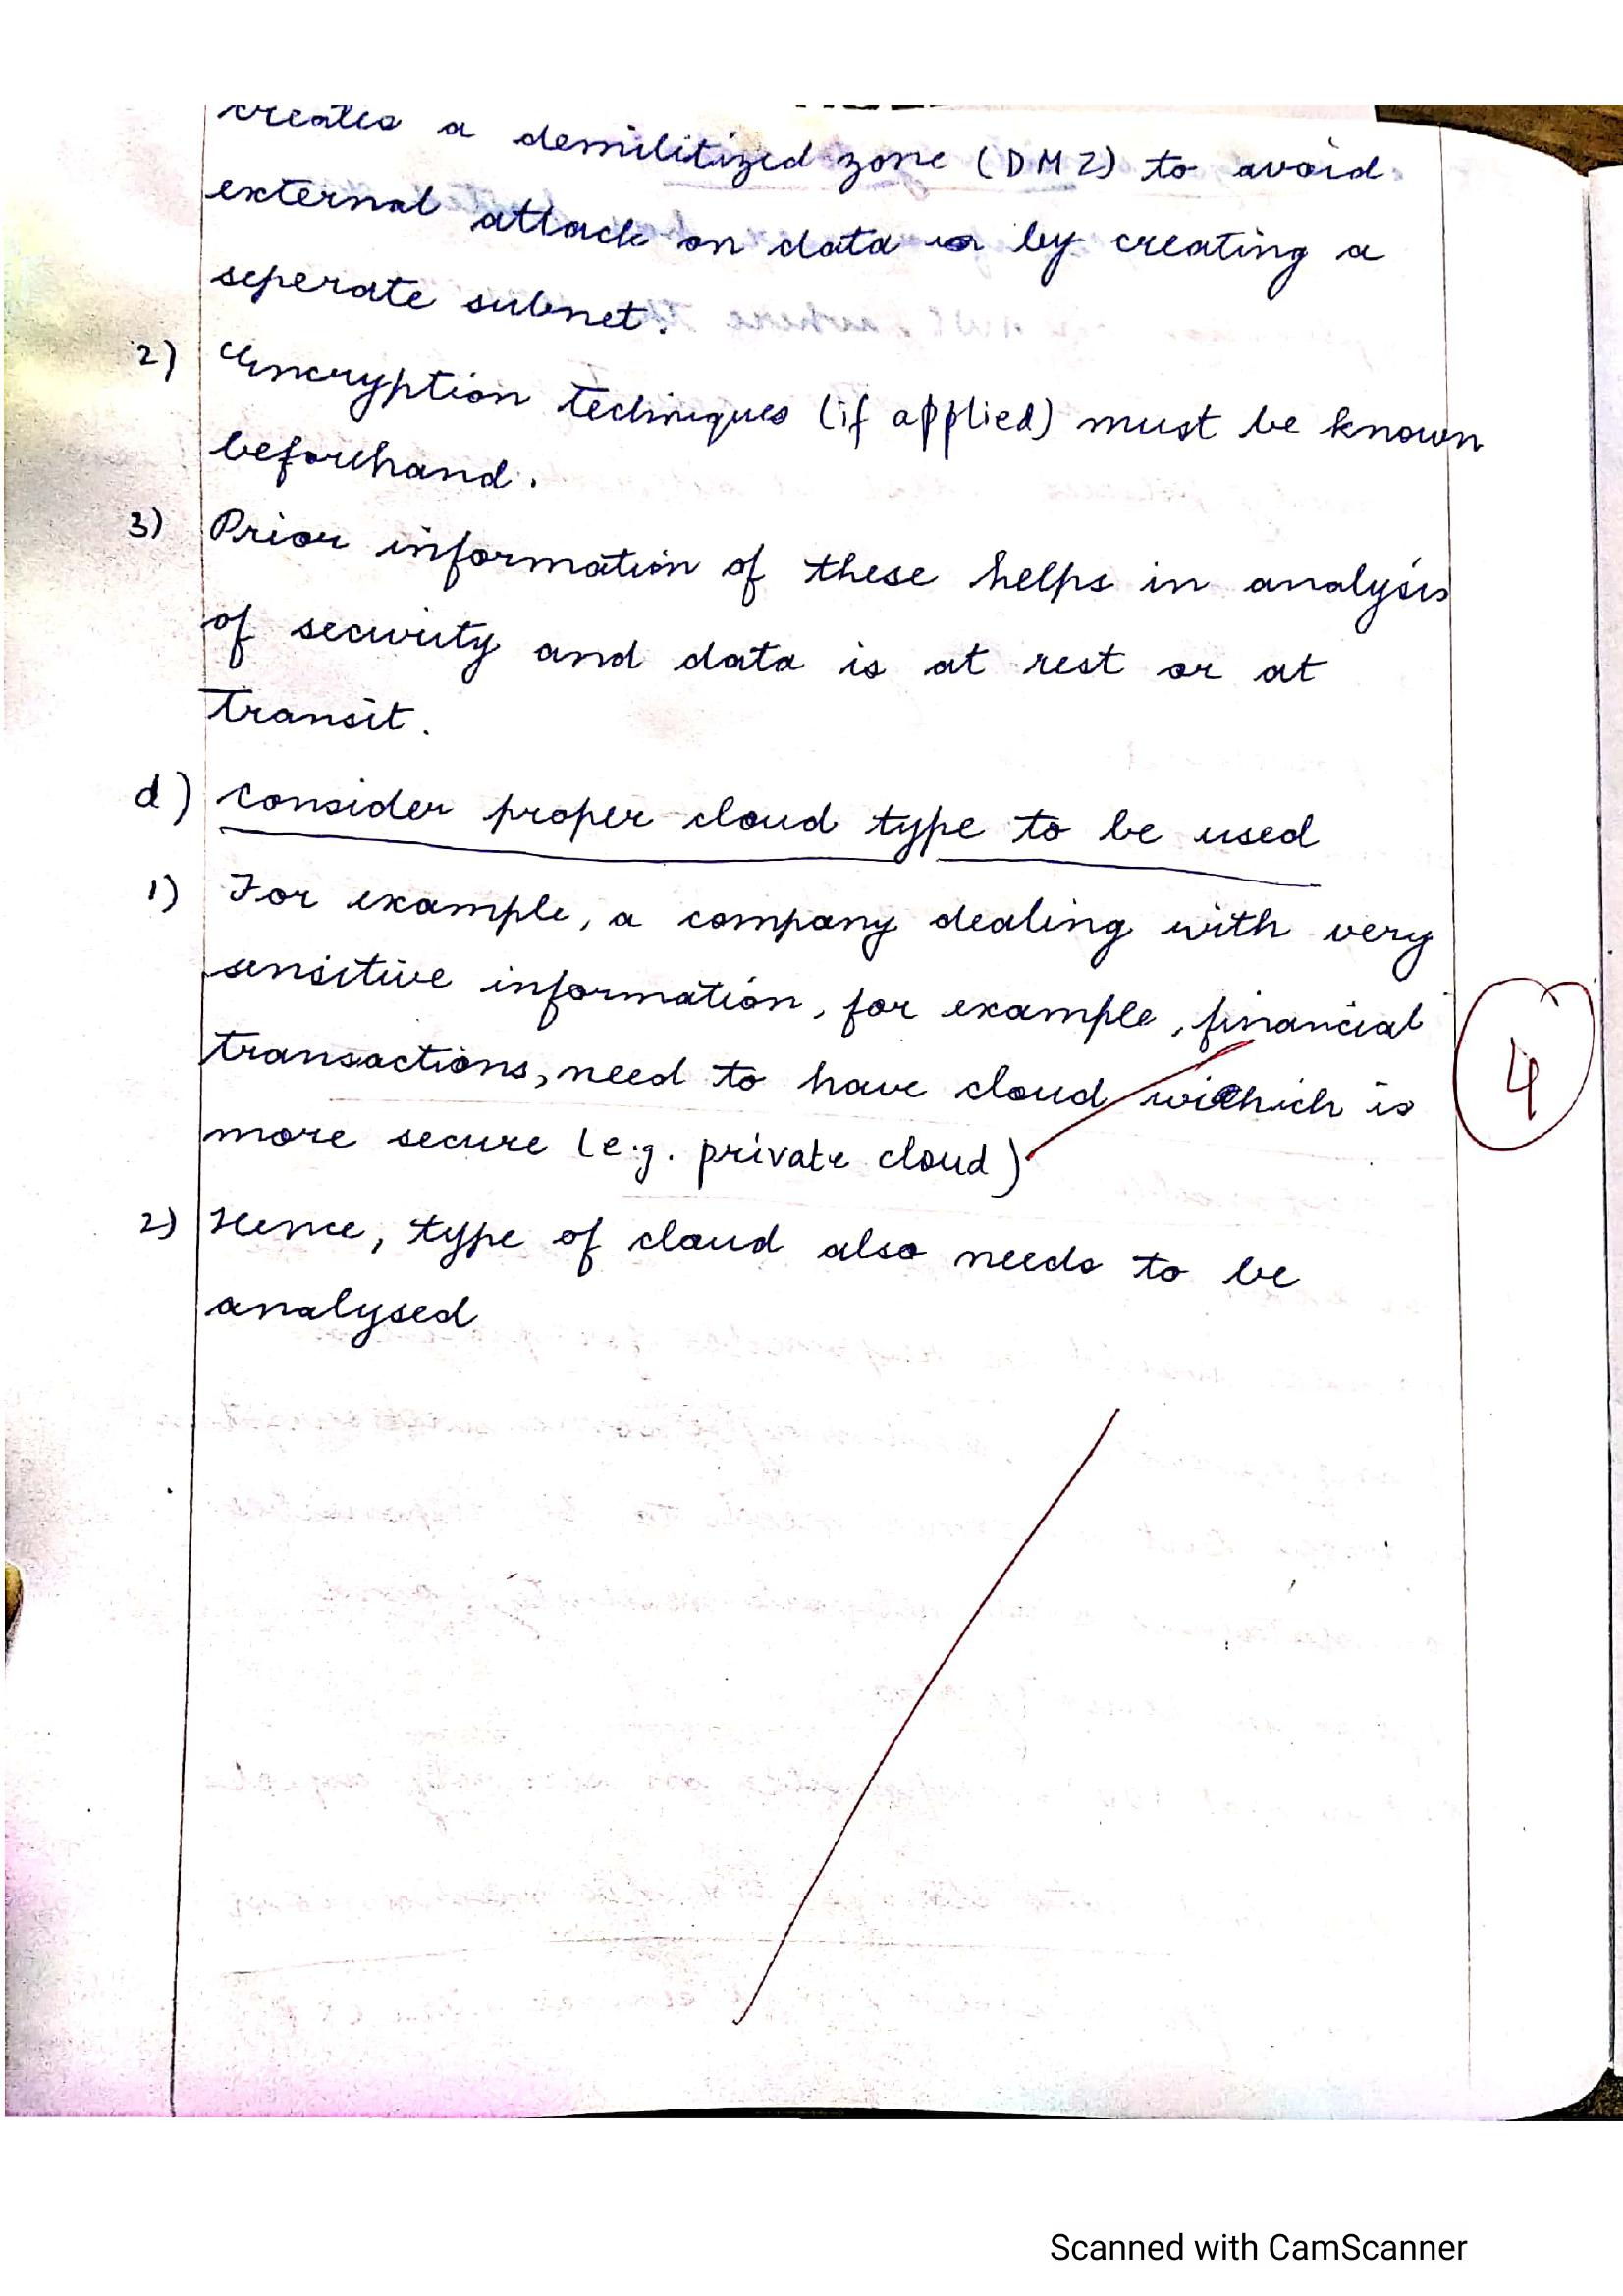 creates a demilitized zone (DMZ) to avoid
external attack on data by creating a
seperate subnet.
2) Encryption techniques (if applied) must be known
beforehand.
3) Prior information of these helps in analysis
of security and data is at rest or at
transit.
d) consider proper cloud type to be used
1) For example, a company dealing with very
sensitive information, for example, financial
transactions, need to have cloud which is
more secure (e.g. private cloud)
4
2) Hence, type of cloud also needs to be
analysed
Scanned with CamScanner